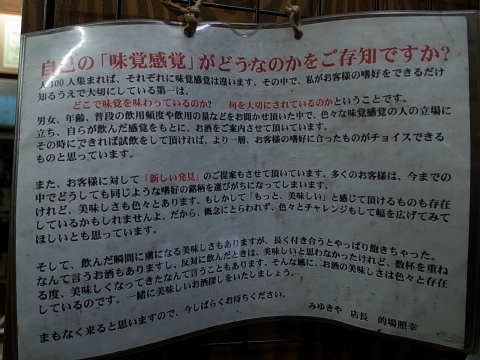 自己の「味覚感覚」がどうなのかをご存知ですか?
人100人集まれば、それぞれに味覚感覚は違います。その中で、私がお客様の嗜好をできるだけ
知るうえで大切にしている第一は、
どこで味覚を味わっているのか? 何を大切にされているのかということです。
男女、年齢、普段の飲用頻度や飲用の量などをお聞かせ頂いた中で、色々な味覚感覚の人の立場に
立ち、自らが飲んだ感覚をもとに、お酒をご案内させて頂いています。
その時にできれば試飲をして頂ければ、より一層、お客様の嗜好に合ったものがチョイスできる
ものと思っています。
また、お客様に対して「新しい発見」のご提案もさせて頂いています。多くのお客様は、今までの
中でどうしても同じような嗜好の銘柄を選びがちになってしまいます。
けれど、美味しさも色々とあります。もしかして「もっと、美味しい」と感じて頂けるものも存在
しているかもしれませんよ。だから、概念にとらわれず、色々とチャレンジもして幅を広げてみて
ほしいとも思っています。
そして、飲んだ瞬間に虜になる美味しさもありますが、長く付き合うとやっぱり飽きちゃった。
なんて言うお酒もありますし、反対に飲んだときは、美味しいと思わなかったけれど、数杯を重ね
る度、美味しくなってきたなんて言うこともあります。そんな風に、お酒の美味しさは色々と存在
しているのです。一緒に美味しいお酒探しをいたしましょう。
まもなく来ると思いますので、今しばらくお待ちください。
みゆきや 店長 的場照幸